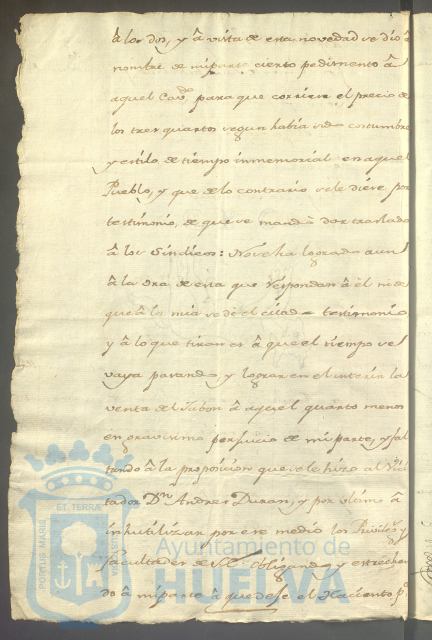 â los dos, y â vista de esta novedad se dio â
nombre de mi parte cierto pedimento â
aquel Cavdo para que corriese el precio de
los tres quartos segun havia sido costumbre
y estilo de tiempo inmemorial en aquel
Pueblo, y que de lo contrario se le diese por
testimonio, de que se mandò dar traslado
â los Sindicos: No se ha logrado aun
â la ora de esta que respondan â èl ni de
que â los mia se dè el citado testimonio
y â lo que tiran es â que el tiempo se
vaya pasando y lograr en el interin la
venta del Jabon â aquel quarto menos
en gravisimo perjuicio de mi parte, y fal
tando â la proposicion que se le hizo al Visi
tador Dn Andres Duran, y por ultimo â
inhutilizar por ese medio los Privilegs y
facultades de obligando y estrechan
do â mi parte â que dese el Haciento pr
Ayuntamiento de
HUELVA
PORTUS MARIS
ET TERRA